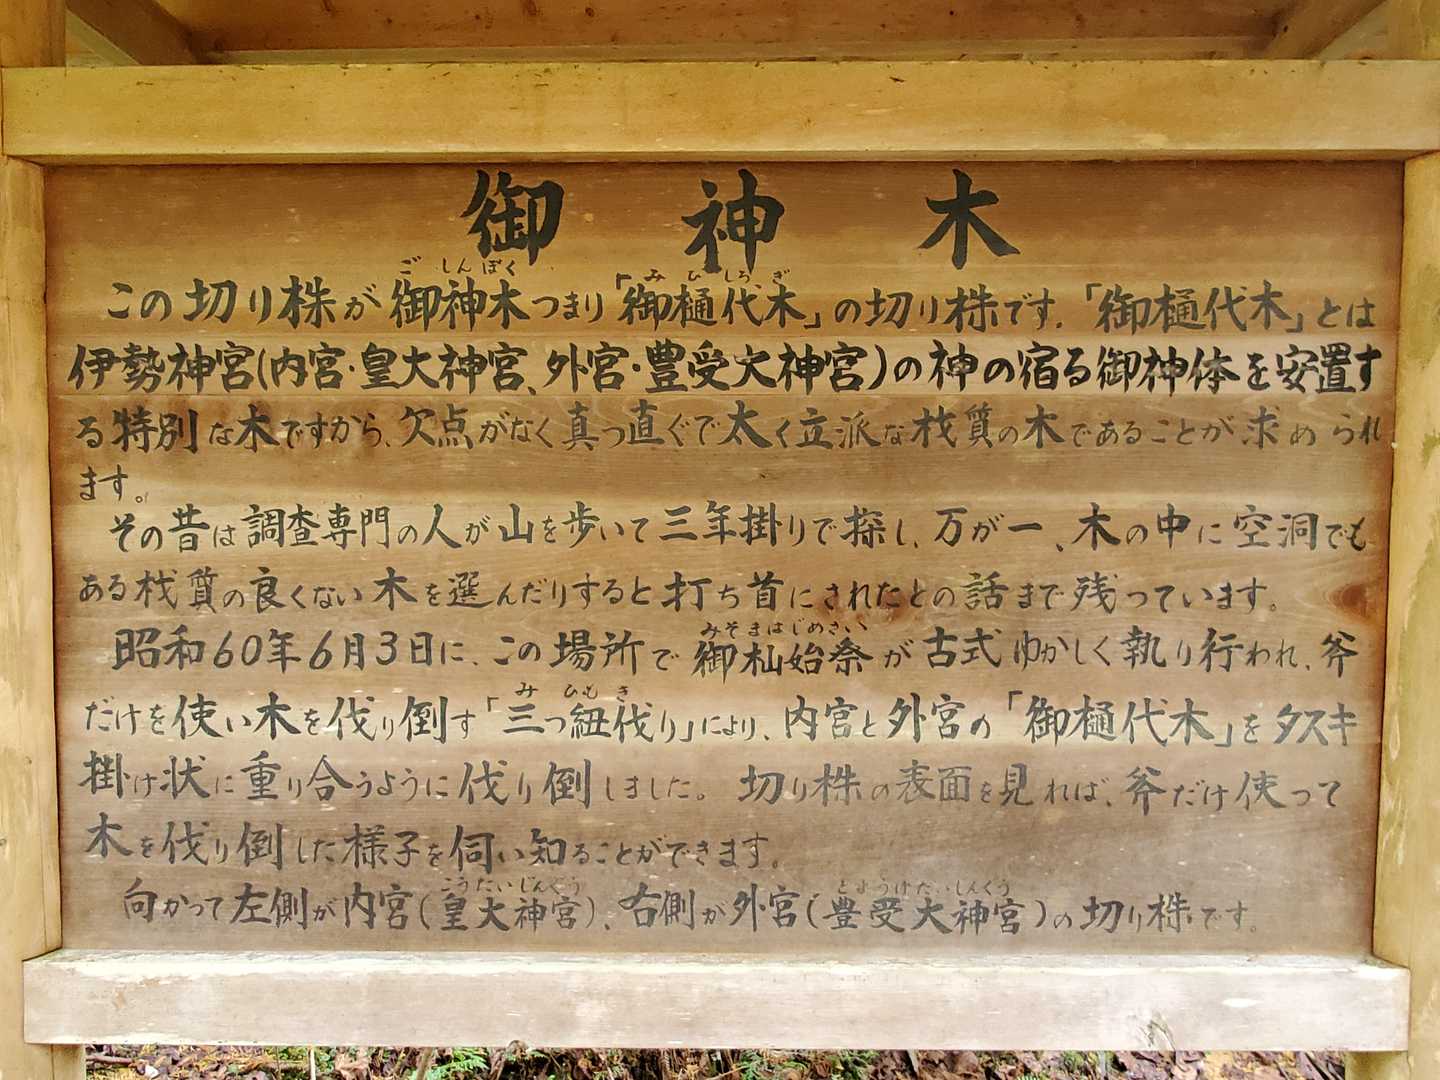 御神木
ごしんぼく みひしろぎ
この切り株が御神木つまり「御樋代木」の切り株です.「御樋代木」とは
伊勢神宮(内宮・皇大神宮、外宮・豊受大神宮)の神の宿る御神体を安置す
る特別な木ですから、欠点がなく真っ直ぐで太く立派な材質の木であることが求められ
ます。
その昔は調査専門の人が山を歩いて三年掛りで探し、万が一、木の中に空洞でも
ある材質の良くない木を選んだりすると打ち首にされたとの話まで残っています。
みそまはじめさい
昭和60年6月3日に、この場所で御杣始祭が古式ゆかしく執り行われ、斧
みひもき
だけを使い木を伐り倒す「三つ紐伐り」により、内宮と外宮の「御樋代木」をタスキ
掛け状に重り合うように伐り倒しました。切り株の表面を見れば、斧だけ使って
木を伐り倒した様子を伺い知ることができます。
こうたいじんぐう とようけだいじんぐう
向かって左側が内宮(皇大神宮)、右側が外宮(豊受大神宮)の切り株です。